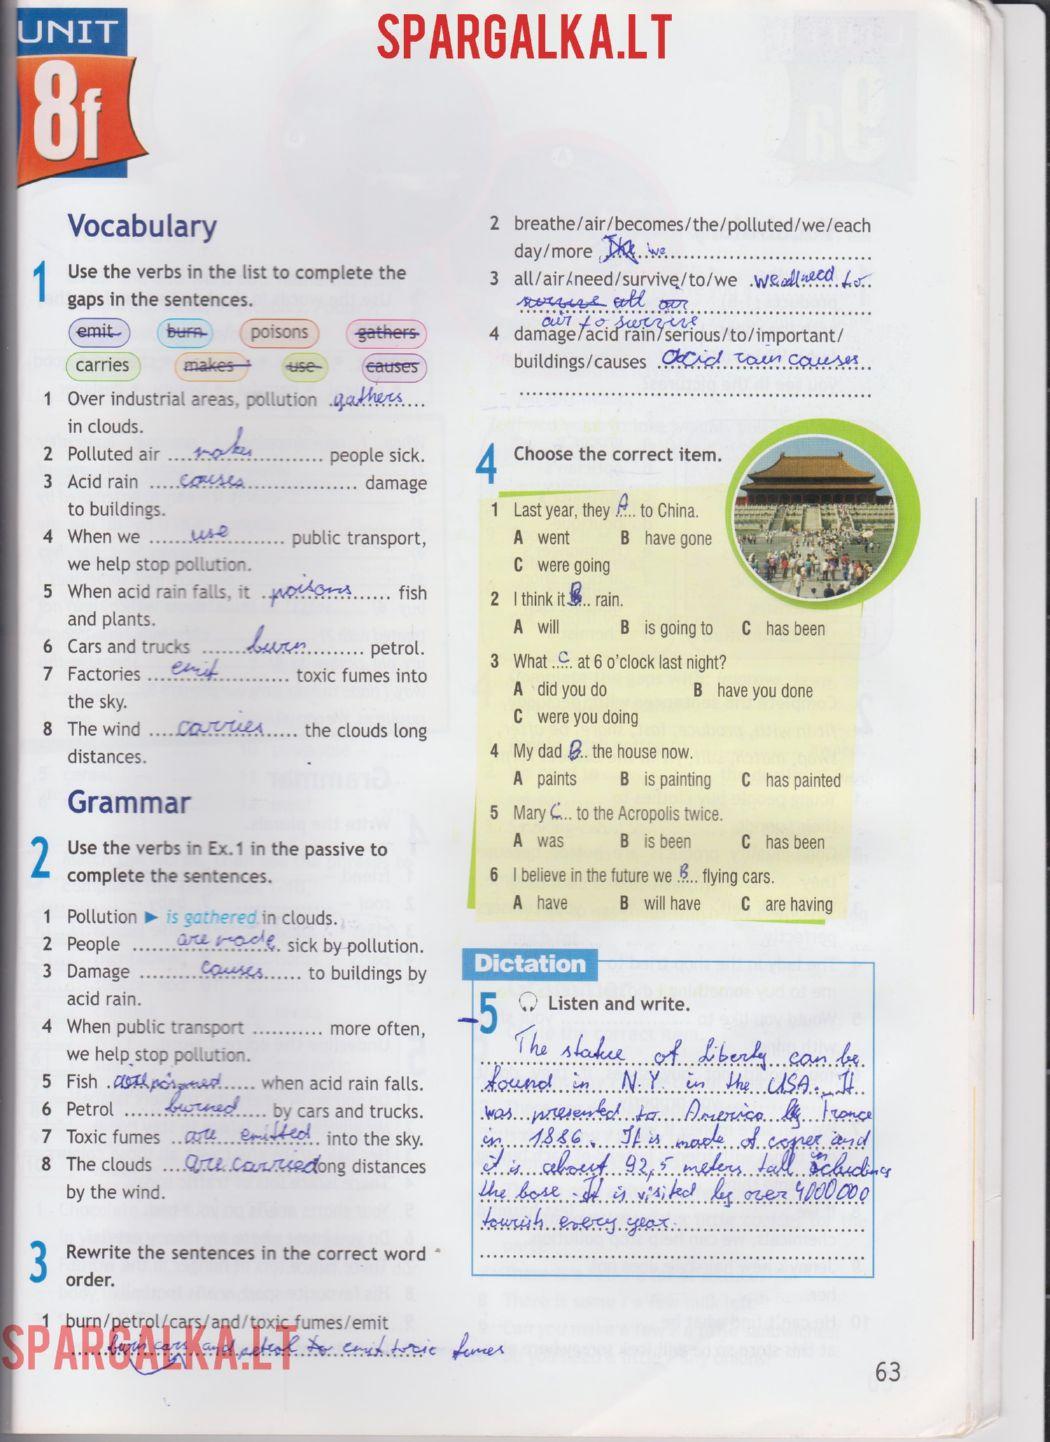 UNIT
8f
SPARGALKA.LT
Vocabulary
1 Use the verbs in the list to complete the
gaps in the sentences.
emit burn poisons gathers
carries makes use causes
1 Over industrial areas, pollution gathers
in clouds.
2 Polluted air makes people sick.
3 Acid rain causes damage
to buildings.
4 When we use public transport,
we help stop pollution.
5 When acid rain falls, it poisons fish
and plants.
6 Cars and trucks burn petrol.
7 Factories emit toxic fumes into
the sky.
8 The wind carries the clouds long
distances.
Grammar
2 Use the verbs in Ex.1 in the passive to
complete the sentences.
1 Pollution ▶ is gathered in clouds.
2 People are made sick by pollution.
3 Damage causes to buildings by
acid rain.
4 When public transport .......... more often,
we help stop pollution.
5 Fish when acid rain falls.
6 Petrol burned by cars and trucks.
7 Toxic fumes are emitted into the sky.
8 The clouds are carried long distances
by the wind.
3 Rewrite the sentences in the correct word
order.
1 burn/petrol/cars/and/toxic fumes/emit
burn cars and petrol to emit toxic fumes
SPARGALKA.LT
2 breathe/air/becomes/the/polluted/we/each
day/more The we
3 all/air/need/survive/to/we we all need to
survive all air
air to survive
4 damage/acid rain/serious/to/important/
buildings/causes Acid rain causes
4 Choose the correct item.
1 Last year, they A to China.
A went B have gone
C were going
2 I think it B rain.
A will B is going to C has been
3 What C at 6 o'clock last night?
A did you do B have you done
C were you doing
4 My dad B the house now.
A paints B is painting C has painted
5 Mary C to the Acropolis twice.
A was B is been C has been
6 I believe in the future we B flying cars.
A have B will have C are having
Dictation
5 Listen and write.
The statue of Liberty can be
found in N.Y. in the USA. It
was presented to America by France
in 1886. It is made of coper and
it is about 92,5 meters tall includings
the base. It is visited by over 4000000
tourish every year.
63